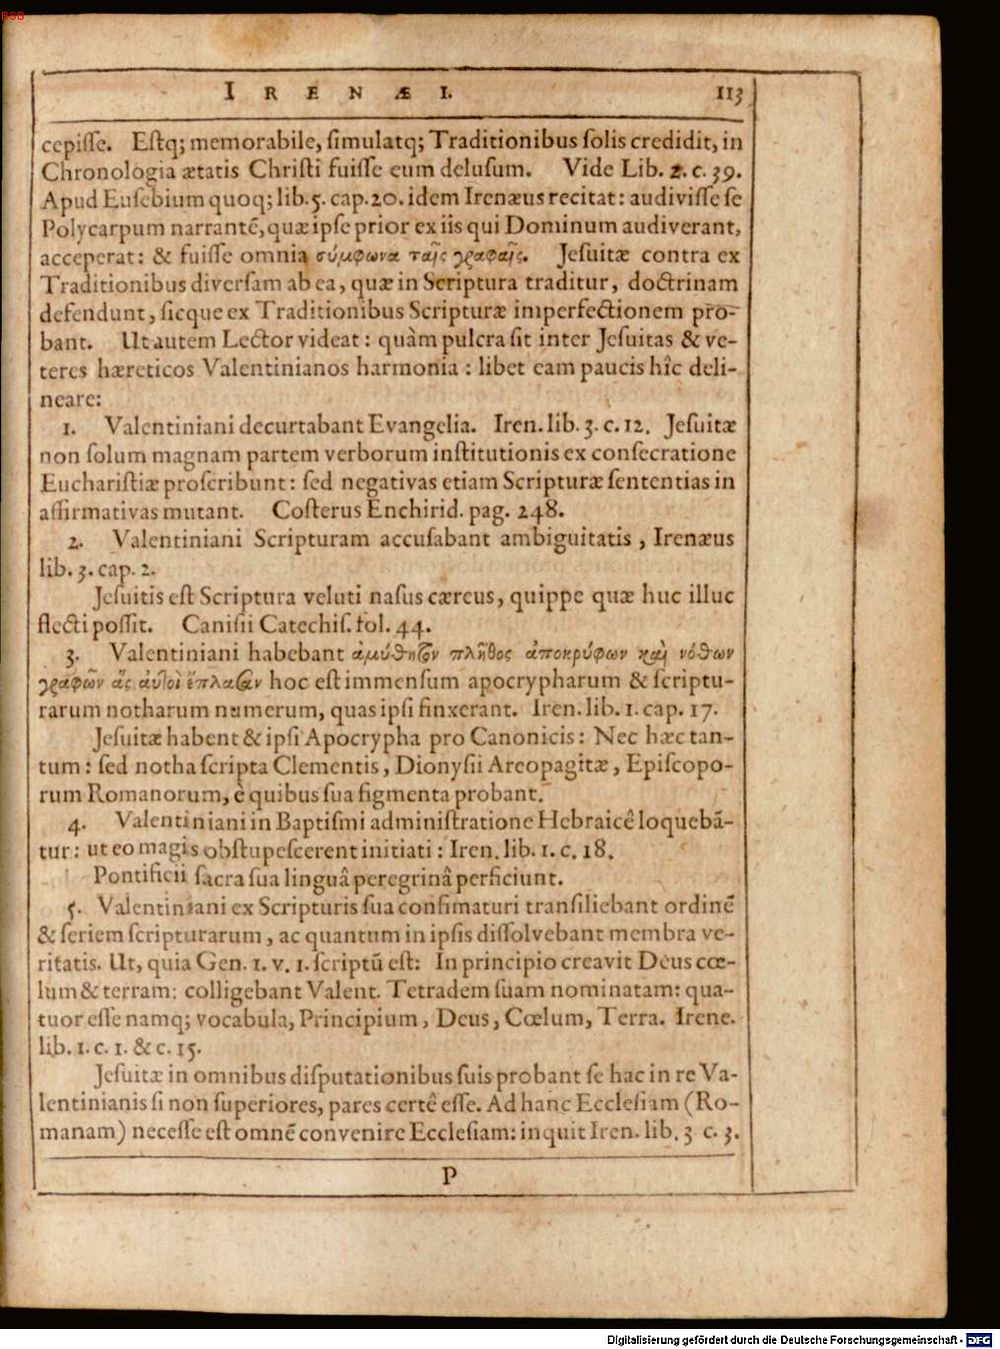 BSB
IRENÆI. 113
cepiſſe. Eſtq; memorabile, ſimulatq; Traditionibus ſolis credidit, in
Chronologia ætatis Chriſti fuiſſe eum deluſum. Vide Lib. 2. c. 39.
Apud Euſebium quoq; lib. 5. cap. 20. idem Irenæus recitat: audiviſſe ſe
Polycarpum narrantē, quæ ipſe prior ex iis qui Dominum audiverant,
acceperat: & fuiſſe omnia σύμφωνα ταῖς γραφαῖς. Jeſuitæ contra ex
Traditionibus diverſam ab ea, quæ in Scriptura traditur, doctrinam
defendunt, ſicque ex Traditionibus Scripturæ imperfectionem pro-
bant. Ut autem Lector videat: quàm pulcra ſit inter Jeſuitas & ve-
teres hæreticos Valentinianos harmonia: libet eam paucis hîc deli-
neare:
1. Valentiniani decurtabant Evangelia. Iren. lib. 3. c. 12. Jeſuitæ
non ſolum magnam partem verborum inſtitutionis ex conſecratione
Euchariſtiæ proſcribunt: ſed negativas etiam Scripturæ ſententias in
affirmativas mutant. Coſterus Enchirid. pag. 248.
2. Valentiniani Scripturam accuſabant ambiguitatis, Irenæus
lib. 3. cap. 2.
Jeſuitis eſt Scriptura veluti naſus cæreus, quippe quæ huc illuc
flecti poſſit. Caniſii Catechiſ. fol. 44.
3. Valentiniani habebant ἀμύθητον πλῆθος ἀποκρύφων καὶ νόθων
γραφῶν ἃς αὐτοὶ ἔπλασαν hoc eſt immenſum apocrypharum & ſcriptu-
rarum notharum numerum, quas ipſi finxerant. Iren. lib. 1. cap. 17.
Jeſuitæ habent & ipſi Apocrypha pro Canonicis: Nec hæc tan-
tum: ſed notha ſcripta Clementis, Dionyſii Areopagitæ, Epiſcopo-
rum Romanorum, è quibus ſua figmenta probant.
4. Valentiniani in Baptiſmi adminiſtratione Hebraicê loquebā-
tur: ut eo magis obſtupeſcerent initiati: Iren. lib. 1. c. 18.
Pontificii ſacra ſua linguâ peregrinâ perficiunt.
5. Valentiniani ex Scripturis ſua confimaturi tranſiliebant ordinē
& ſeriem ſcripturarum, ac quantum in ipſis diſſolvebant membra ve-
ritatis. Ut, quia Gen. 1. v. 1. ſcriptū eſt: In principio creavit Deus cœ-
lum & terram: colligebant Valent. Tetradem ſuam nominatam: qua-
tuor eſſe namq; vocabula, Principium, Deus, Cœlum, Terra. Irene.
lib. 1. c. 1. & c. 15.
Jeſuitæ in omnibus diſputationibus ſuis probant ſe hac in re Va-
lentinianis ſi non ſuperiores, pares certê eſſe. Ad hanc Eccleſiam (Ro-
manam) neceſſe eſt omnē convenire Eccleſiam: inquit Iren. lib. 3 c. 3.
P
Digitalisierung gefördert durch die Deutsche Forschungsgemeinschaft - DFG